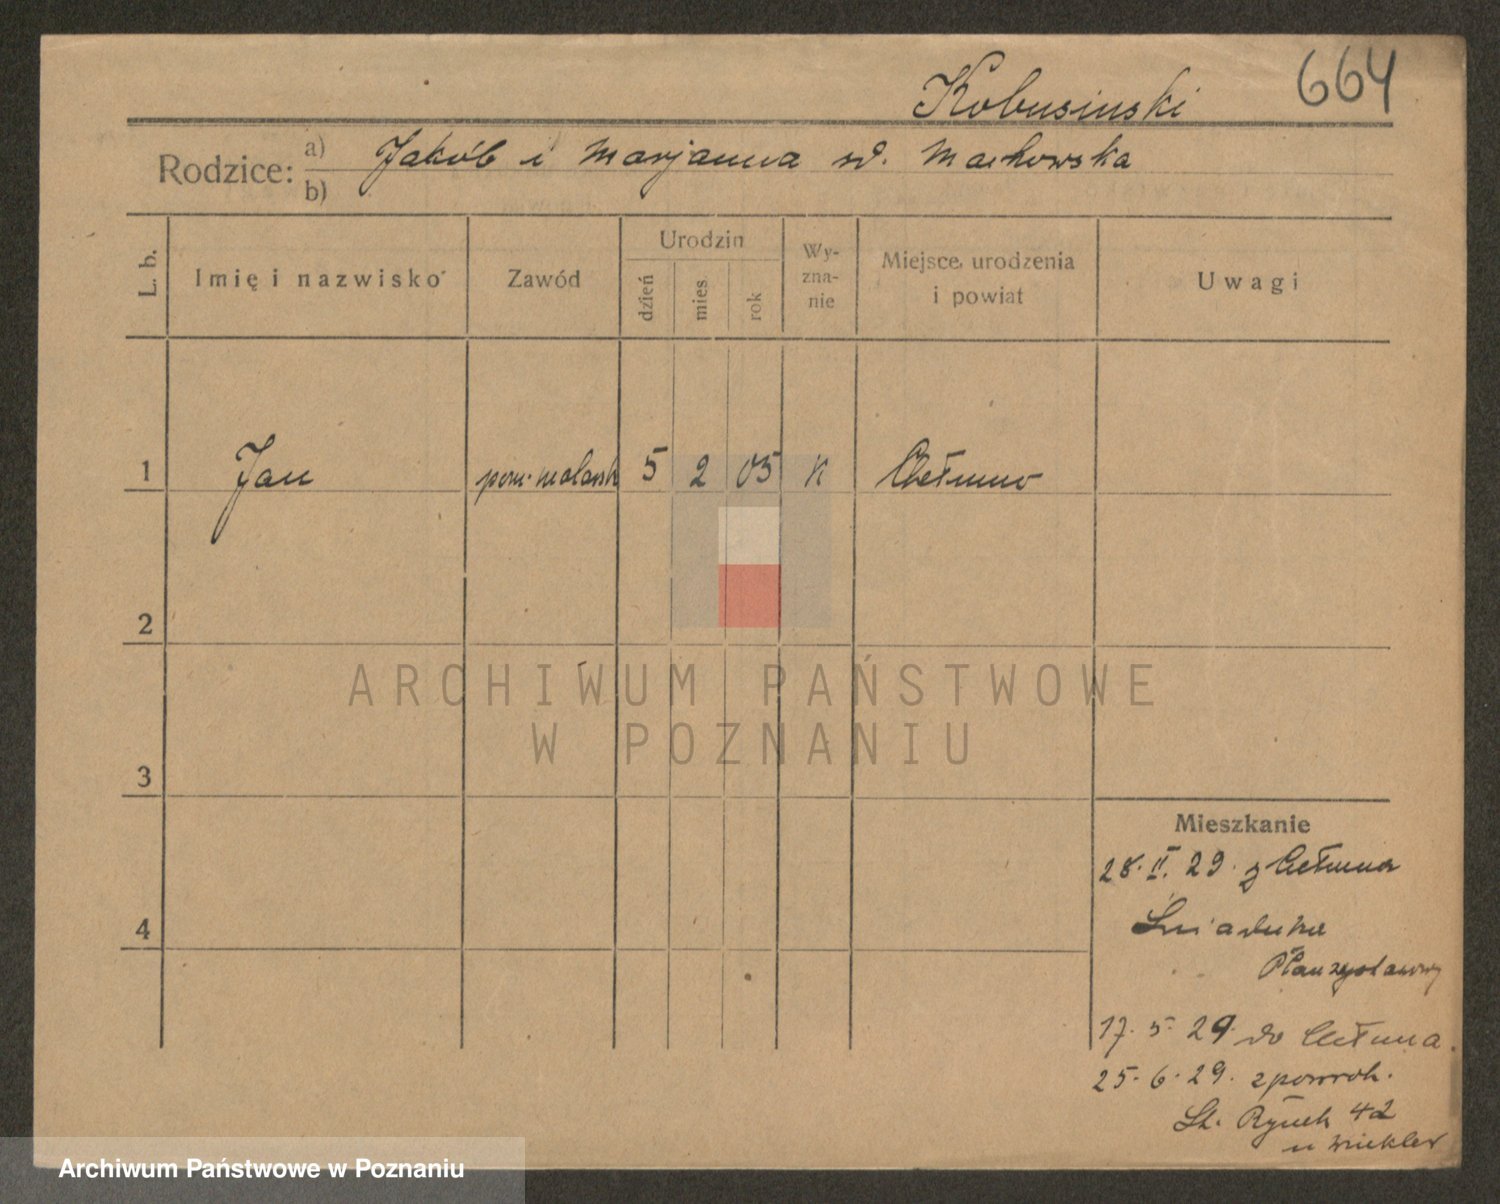 Kobusinski 664
Rodzice: a) Jakób i Marjanna sd. Machowska
b)
L. b. Imię i nazwisko Zawód Urodzin dzień mies. rok Wy-zna-nie Miejsce urodzenia i powiat Uwagi
1 Jan pom. malarsk 5 2 05 K Chełmno
2
ARCHIWUM PAŃSTWOWE
W POZNANIU
3
Mieszkanie
28. II. 29. z Chełmna
4
17. 5. 29. do Chełmna.
25. 6. 29. zpowrok.
St. Rynek 42
u Winkler
Archiwum Państwowe w Poznaniu